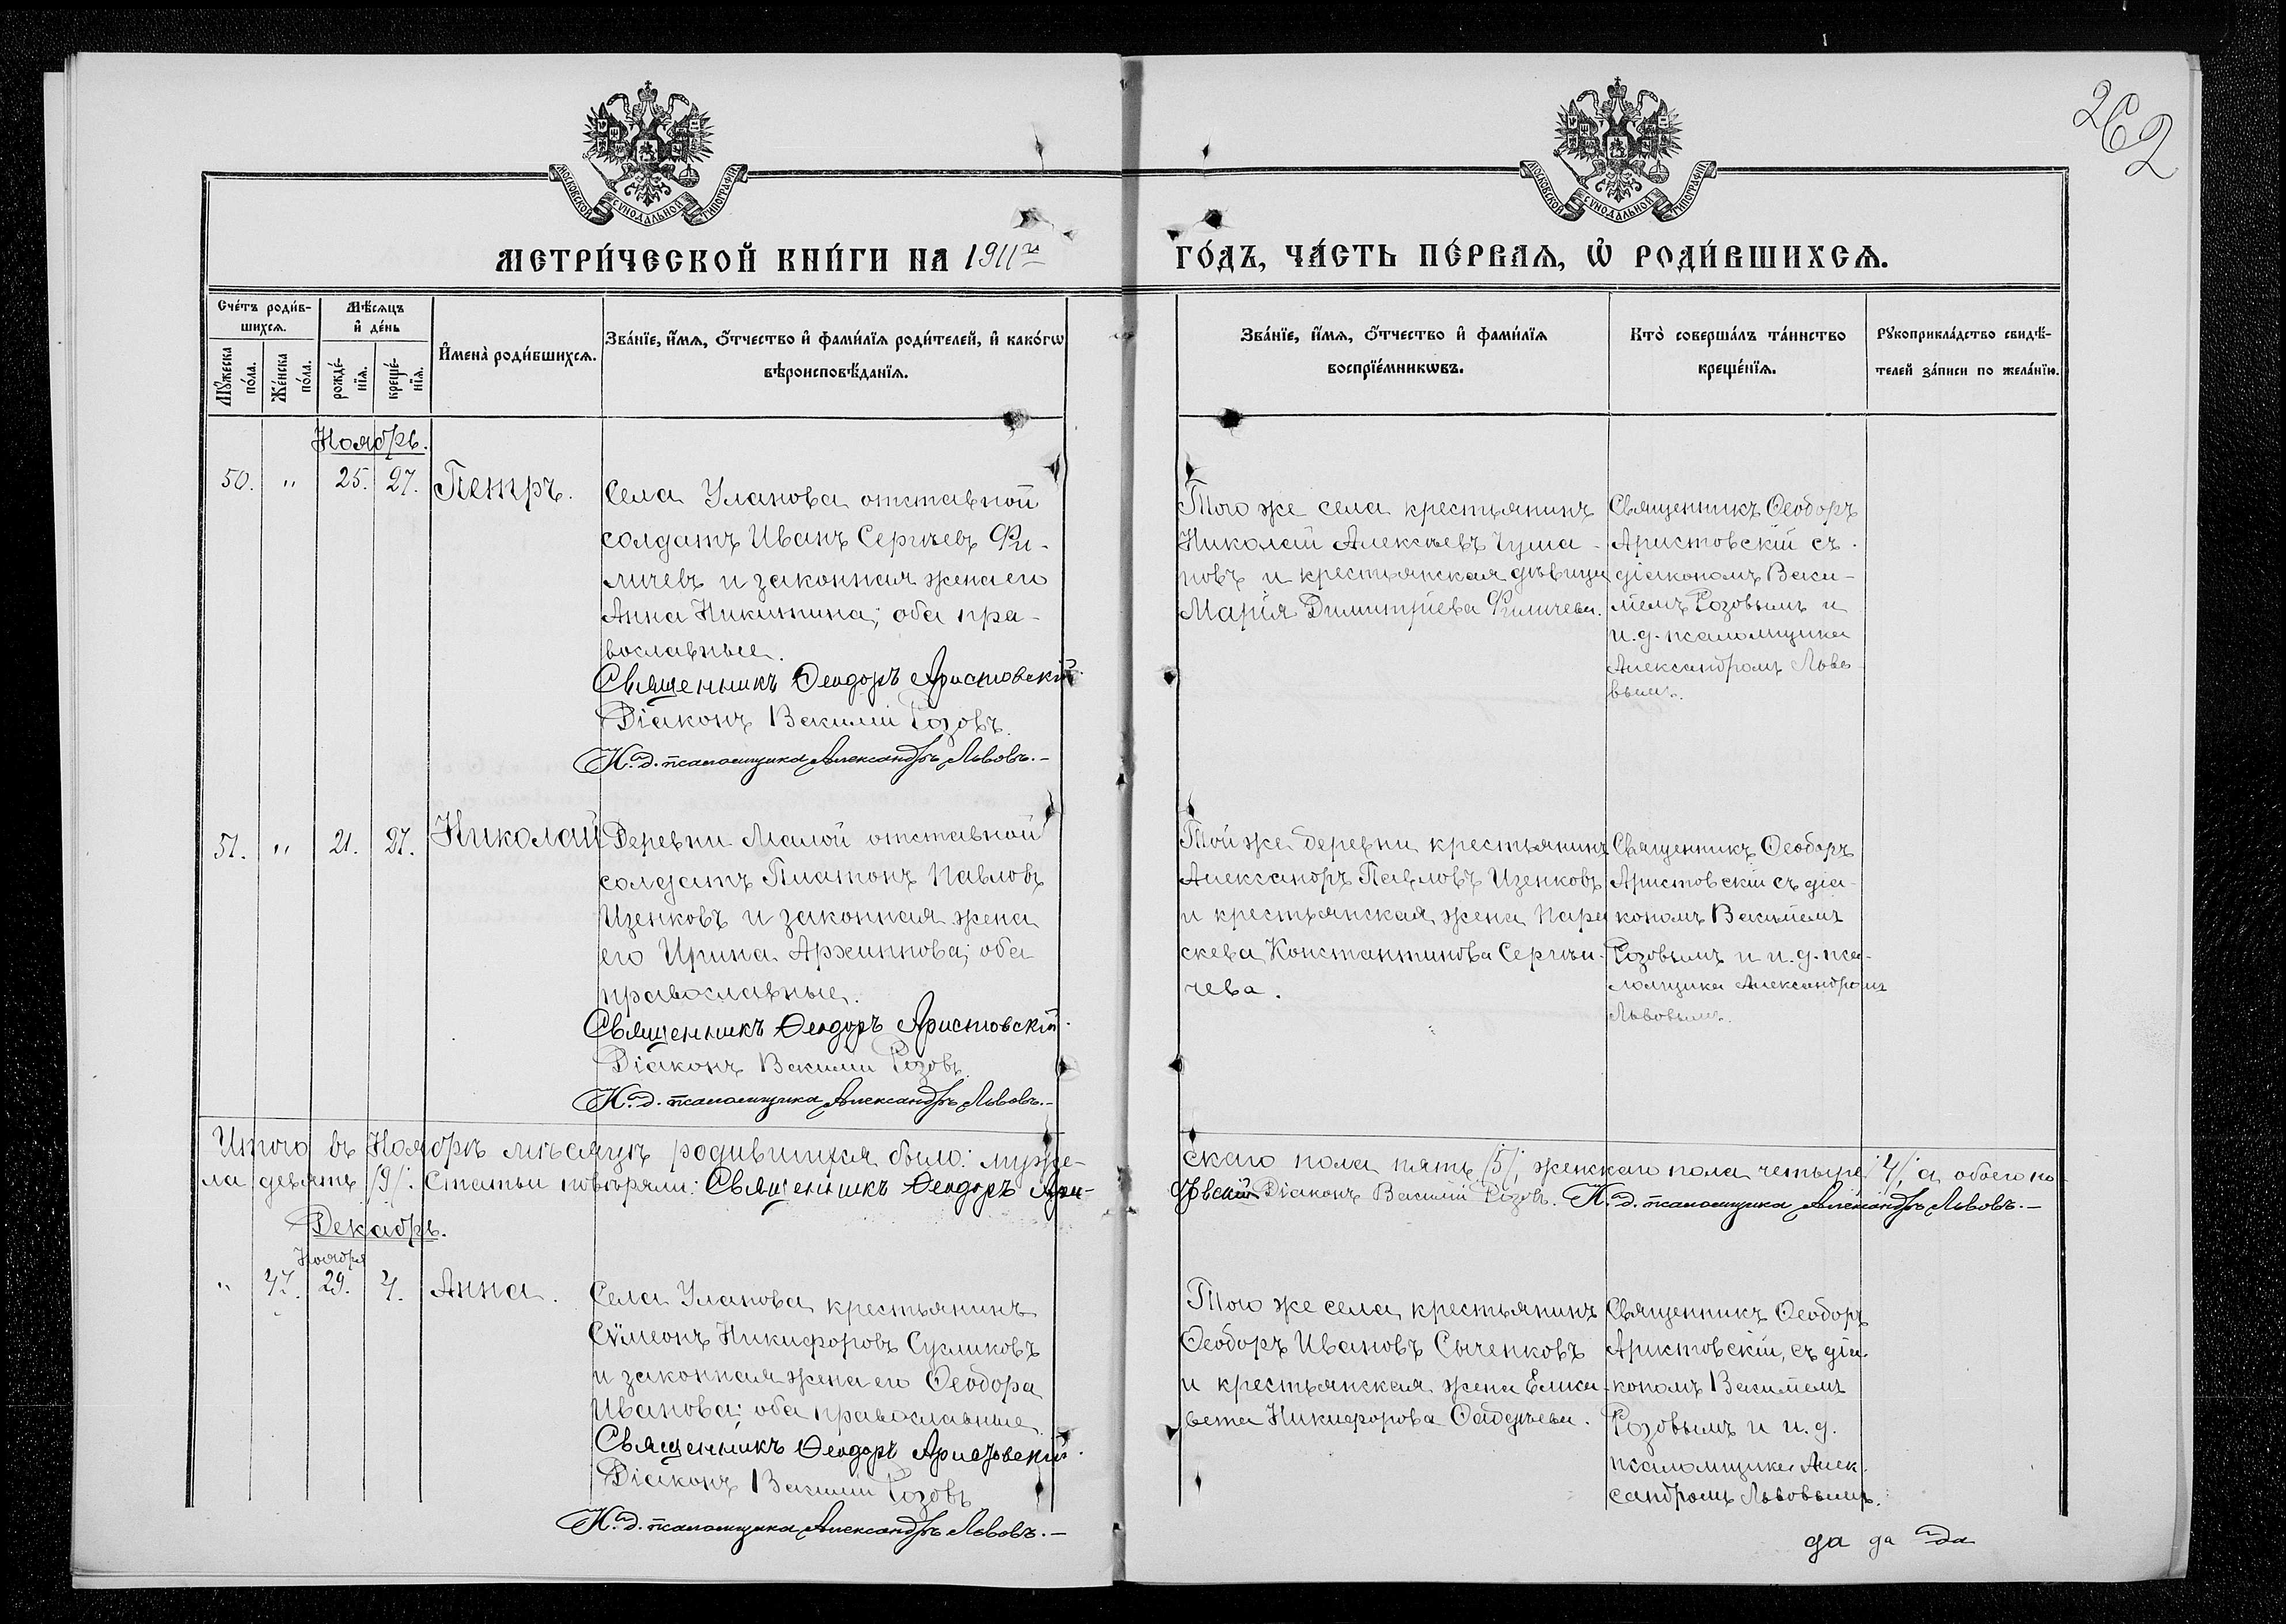 262
МОСКОВСКОЙ СѴНОДАЛЬНОЙ ТИПОГРАФІИ
МОСКОВСКОЙ СѴНОДАЛЬНОЙ ТИПОГРАФІИ
МЕТРИ́ЧЕСКОЙ КНИ́ГИ НА 1911й
ГО́ДЪ, ЧА́СТЬ ПЕ́РВАѦ, Ѿ РОДИ́ВШИХСѦ.
Сче́тъ роди́в-
шихсѧ.
Мꙋжеска
по́ла.
Же́нска
по́ла.
Мѣ́сѧцъ
и де́нь
рожде́-
нїѧ.
креще́-
нїѧ.
Имена̀ роди́вшихсѧ.
Зва́нїе, и́мѧ, ѻ́тчество и фами́лїѧ роди́телей, и како́гѡ
вѣроисповѣ́данїѧ.
Зва́нїе, и́мѧ, ѻ́тчество и фами́лїѧ
воспрїе́мникѡвъ.
Кто̀ соверша́лъ та́инство
креще́нїѧ.
Рꙋкоприкла́дство свидѣ́-
телей за́писи по жела́нїю.
Ноябрь.
50. " 25. 27. Петръ.
Села Уланова отставной
солдатъ Иванъ Сергѣевъ Фи-
личевъ и законная жена его
Анна Никитина; оба пра-
вославные.
Священникъ Ѳеодоръ Аристовскій.
Діаконъ Василій Розовъ.
И. д. псаломщика Александръ Львовъ.–
Того же села крестьянинъ
Николай Алексѣевъ Чума-
новъ и крестьянская дѣвица
Марія Димитріева Филичева.
Священникъ Ѳеодоръ
Аристовскій съ
діакономъ Васи-
ліемъ Розовымъ и
и. д. псаломщика
Александромъ Льво-
вымъ.
51. " 21. 27. Николай
Деревни Малой отставной
солдатъ Платонъ Павловъ
Изенковъ и законная жена
его Ирина Архиппова; оба
православные.
Священникъ Ѳеодоръ Аристовскій.
Діаконъ Василій Розовъ.
И. д. псаломщика Александръ Львовъ.–
Той же деревни крестьянинъ
Александръ Павловъ Изенковъ
и крестьянская жена Пара
скева Константинова Сергѣи-
чева.
Священникъ Ѳеодоръ
Аристовскій съ діа-
кономъ Василіемъ
Розовымъ и и. д. пса-
ломщика Александромъ
Львовымъ.
Итого въ Ноябрѣ мѣсяцѣ родившихся было: мужe-
скаго пола пять /5/, женскаго пола четыре /4/, а обоего по-
ла девять /9/. Статьи повѣряли: Священникъ Ѳеодоръ Ари-
товскій Діаконъ Василій Розовъ. И. д. псаломщика Александръ Львовъ.–
Декабрь.
Ноября
" 47. 29. 4. Анна.
Села Уланова крестьянинъ
Сѵмеонъ Никифоровъ Сусликовъ
и законная жена его Ѳеодора
Иванова; оба православные
Священникъ Ѳеодоръ Аристовскій.
Діаконъ Василій Розовъ
И. д. псаломщика Александръ Львовъ.–
Того же села крестьянинъ
Ѳеодоръ Ивановъ Сыченковъ
и крестьянская жена Елиса-
вета Никифорова Ѳаддѣева.
Священникъ Ѳеодоръ
Аристовскій, съ діа-
кономъ Василіемъ
Розовымъ и и. д.
псаломщика Алек-
сандромъ Львовымъ.
да да да